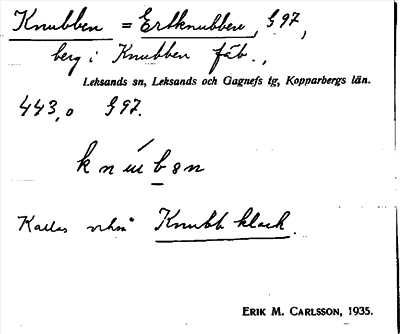 Knubben = Ertknubben, § 97,
berg i Knubben fäb.,
Leksands sn, Leksands och Gagnefs tg, Kopparbergs län.
443,0 § 97.
Kallas också Knubb klack.
ERIK M. CARLSSON, 1935.